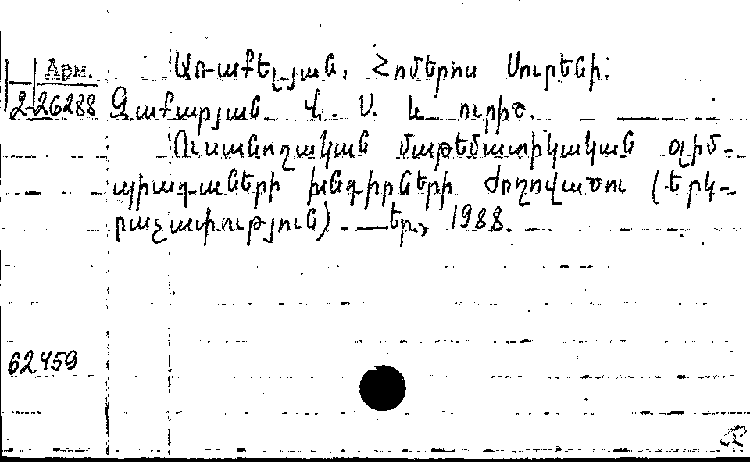 Арм.
2-26288
Առաքելյան, Հոմերոս Սուրենի:
Զաքարյան Վ. Ս. և ուրիշ.
Ուսանողական մաթեմատիկական օլիմ-
պիադաների խնդիրների ժողովածու (երկ-
րաչափություն) — եր., 1988.
62459